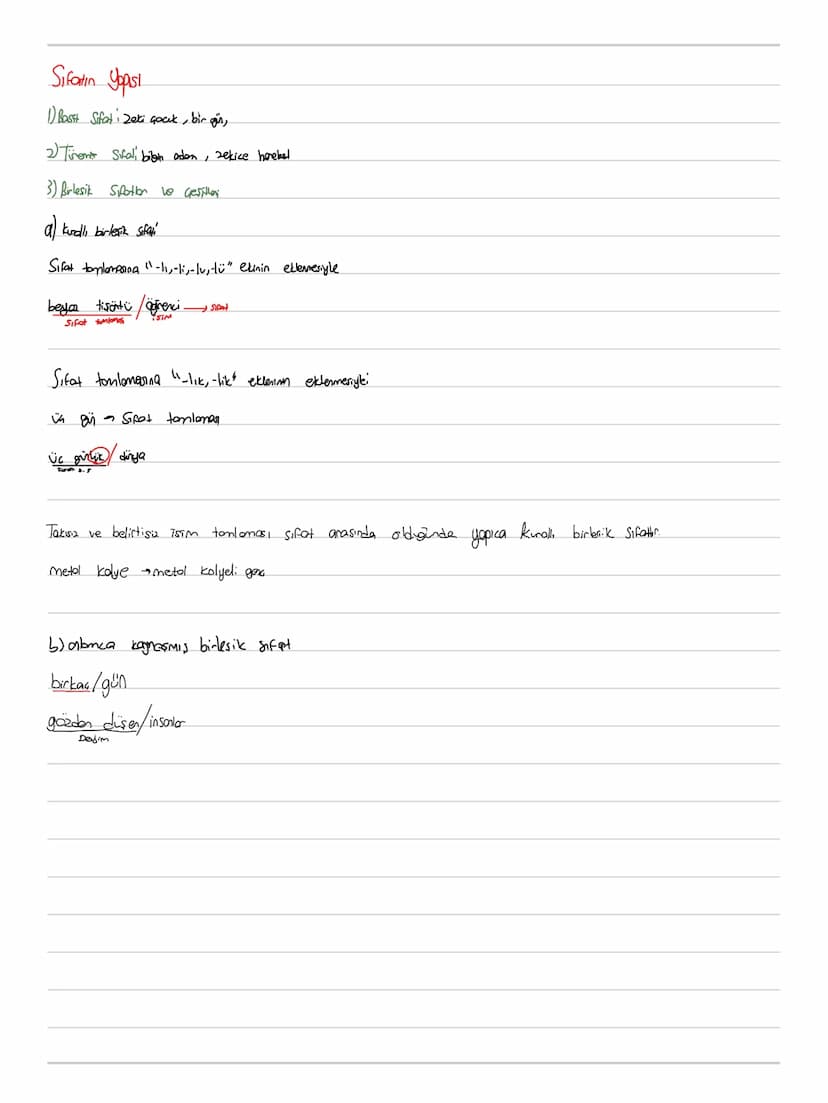 Sıfatın Yapısı
1) Basit Sıfat: zeki çocuk, bir gün,
2) Türemiş Sıfat: bilgin adam, zekice hareket
3) Birleşik Sıfatlar ve Çeşitleri
a) Kurallı birleşik sıfat
Sıfat tamlamasına "-lı, -li, -lu, -lü" ekinin eklenmesiyle
beyaz tişörtlü / öğrenci → sıfat
sıfat tamlaması isim
Sıfat tamlamasına "-lık, -lik" eklerinin eklenmesiyle
üç gün → Sıfat tamlaması
üç günlük / dünya
Takısız ve belirtisiz isim tamlaması sıfat arasında olduğunda yapıca kurallı birleşik sıfattır.
metal kolye → metal kolyeli genç
b) anlamca kaynaşmış birleşik sıfat
birkaç / gün
gözden düşen / insanlar
Deyim